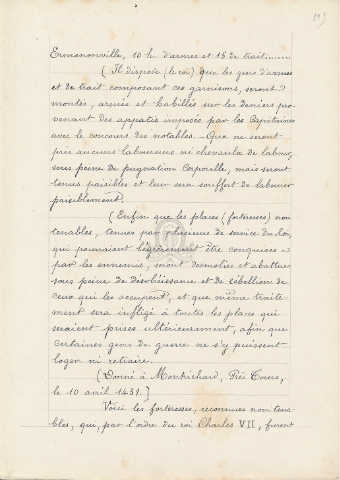 Ermenonville, 10 h. d'armes et 15 de trait.
(Il dispose (le roi) que les gens d'armes
et de trait composant ces garnisons, seront
montés, armés et habillés sur les deniers pro-
venant des appatis imposés par les Capitaines
avec le concours des notables. Que ne seront
pris aucuns laboureurs ni chevaulx de labour,
sous peine de pugnation Corporelle, mais seront
tenus paisibles et leur sera souffert de labourer
paisiblement.
(Enfin que les places (forteresses) non
tenables, tenues par plusieurs de service du Roi,
qui pourraient légèrement être conquises
par les ennemis, seront démolies et abattues
sous peine de désobéissance et de rébellion de
ceux qui les occupent, et que même traite-
ment sera infligé à toutes les places qui
seraient prises ultérieurement, afin que
certaines gens de guerre ne s'y puissent
loger ni retraire.
(Donné à Montrichard, Près Tours,
le 10 avril 1431.]
Voici les forteresses, reconnues non tena-
bles, qui, par l'ordre du roi Charles VII, furent